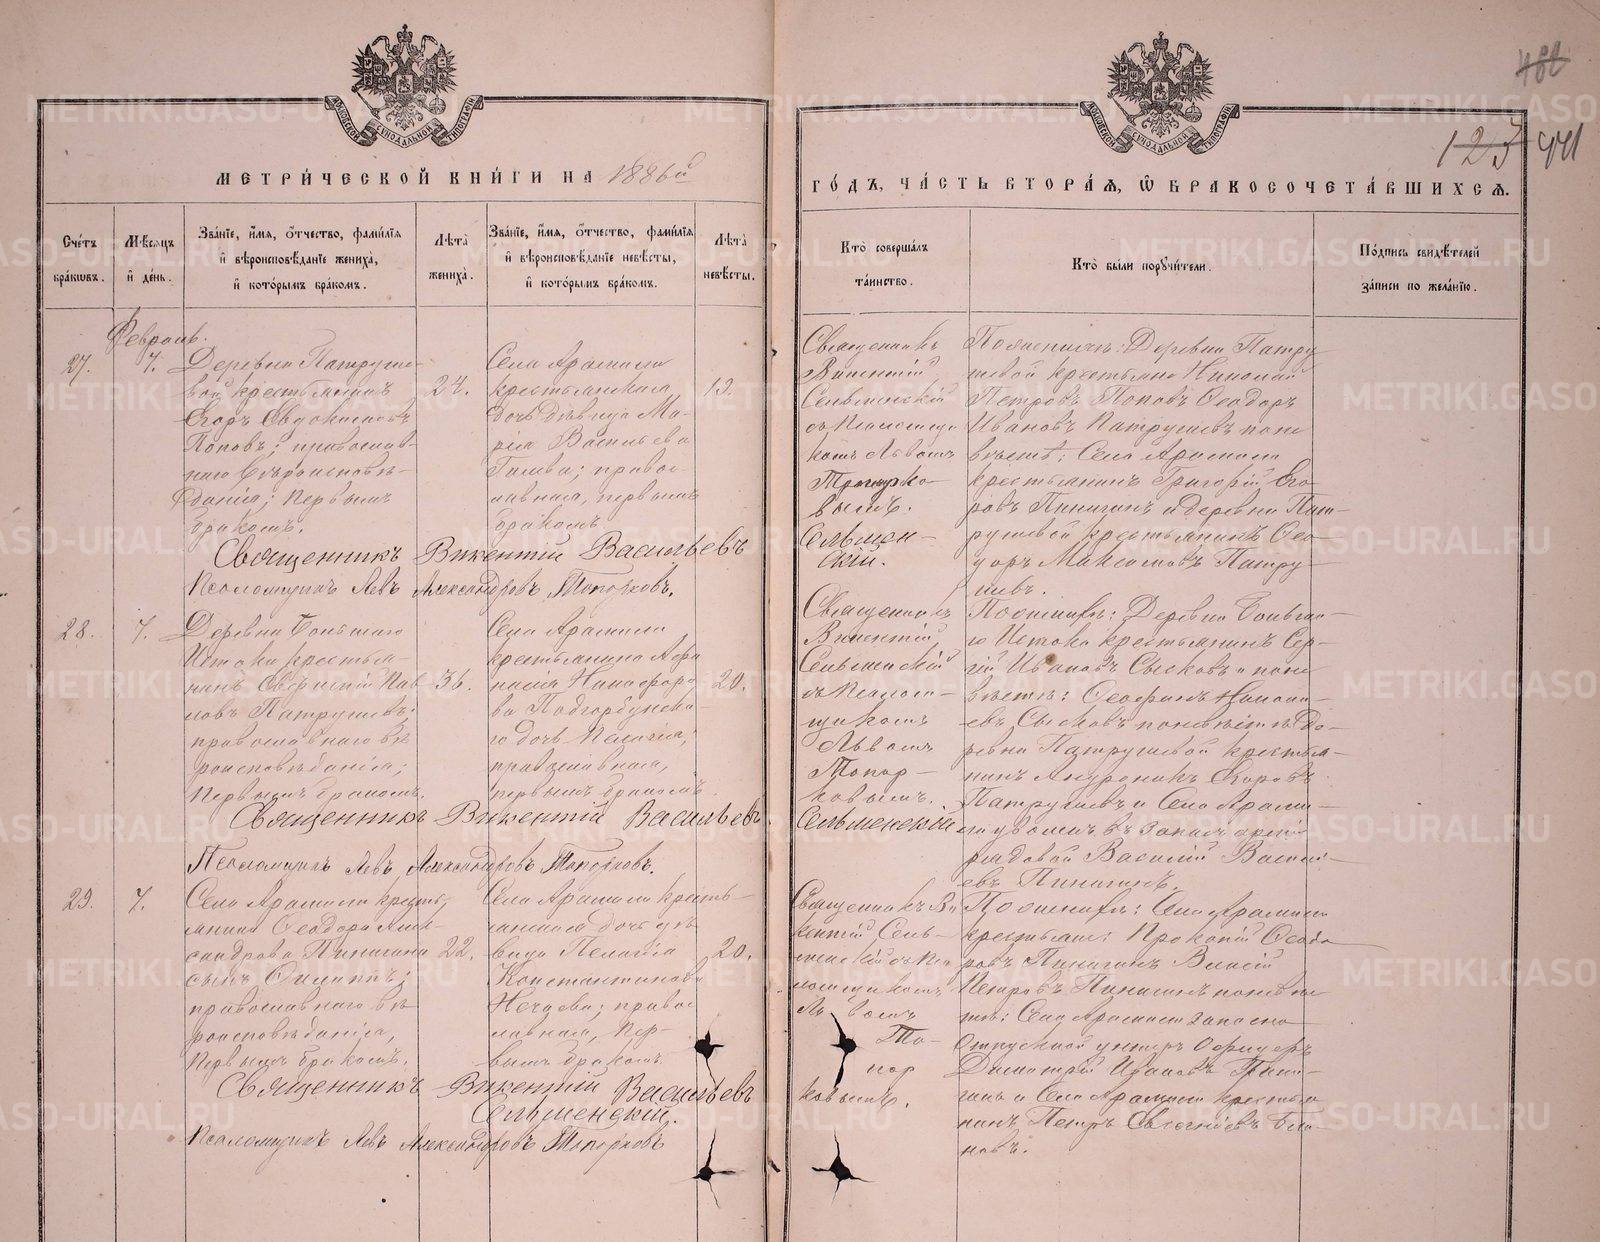 МЕТРИ́ЧЕСКОЙ КНИ́ГИ НА 1886й
ГО́ДЪ, ЧА́СТЬ ВТОРА́Я, Ѡ БРАКОСОЧЕТА́ВШИХСЯ.
123 441
Сче́тъ бра́кѡвъ.
Мѣ́сяцъ и де́нь.
Зва́нїе, и́мя, о́тчество, фами́лїя и вѣроисповѣ́данїе жениха́, и кото́рымъ бра́комъ.
Лѣта̀ жениха̀.
Зва́нїе, и́мя, о́тчество, фами́лїя и вѣроисповѣ́данїе невѣ́сты, и кото́рымъ бра́комъ.
Лѣта̀ невѣ́сты.
Кто̀ соверша́лъ та́инство.
Кто̀ бы́ли поручи́тели.
По́дпись свидѣ́телей за́писи по жела́нїю.
Февраль.
27.
7.
Деревни Патруше-
вой крестьянинъ
Егоръ Евдокимовъ
Поповъ; православ-
наго вѣроисповѣ-
данія; первымъ
бракомъ.
24.
Села Арамили
крестьянская
дочь девица Ма-
рія Васильева
православная, первымъ
бракомъ.
19.
Священникъ
Викентій
Сельменскій
съ Псаломщи
комъ Львомъ
Топорко-
вымъ.
Поженихѣ: Деревни Патру
шевой крестьяне Николай
Петровъ Поповъ Ѳеодоръ
Ивановъ Патрушевъ поне
вѣстѣ: Села Арамили
крестьянинъ Григорій Его
ровъ Пинигинъ и деревни Пат-
рушевой крестьянинъ Ѳео-
доръ Максимовъ Патру-
шевъ.
Священникъ Викентій Васильевъ
Сельмен-
скій.
Псаломщикъ Левъ Александровъ Топорковъ.
28.
7.
Деревни Большаго
Истока крестья-
нинъ
ловъ Патрушевъ;
православнаго вѣ
роисповѣданія;
первымъ бракомъ.
36.
Села Арамили
крестьянина Афа
насія Никифоро
ва
го дочь Пелагія;
православная,
первымъ бракомъ.
20.
Священникъ
Викентій
Сельменскій
съ Псалом-
щикомъ
Львомъ
Топор-
ковымъ.
Поженихѣ: Деревни Больша-
го Истока крестьянинъ Сер-
гій Ивановъ Сысковъ и поне
вѣстѣ: Ѳеофанъ
евъ Сысковъ поневѣстѣ де-
ревни Патрушевой крестья-
нинъ Андроникъ Егоровъ
Патрушевъ и Села Арами-
ли уволенъ въ запасъ арміи
рядовой Василій Василь-
евъ Пинигинъ.
Священникъ Викентій Васильевъ
Сельменскій
Псаломщикъ Левъ Александровъ Топорковъ.
29.
7.
Села Арамили кресть,
янина Ѳеодора Алек-
сандрова Пинигина
сынъ Филиппъ;
православнаго вѣ
роисповѣданія,
первымъ бракомъ.
22.
Села Арамили кресть-
янская дочь дѣ-
вица Пелагія
Константинова
православная, пер-
вымъ бракомъ
20.
Священникъ Ви
кентій Сель-
менскій съ Пса
ломщикомъ
Львомъ
То-
пор
ковымъ.
Поженихѣ: Села Арамили
крестьяне: Прокопій Ѳеодо
ровъ Пинигинъ Власій
Петровъ Пинигинъ поневѣс
тѣ: Села Арамили запасно
отпускной унтеръ Офицеръ
Димитрій Ивановъ Пини-
гинъ и Села Арамили крестья
нинъ Петръ
новъ.
Священникъ Викентій Васильевъ
Сельменскій.
Псаломщикъ Левъ Александровъ Топорковъ
METRIKI.GASO-URAL.RU